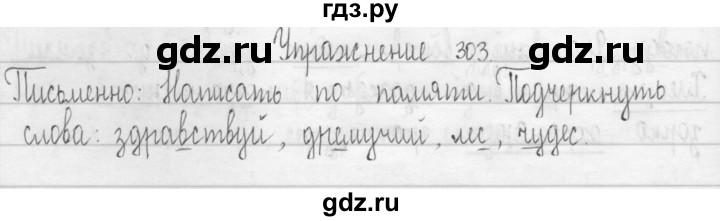 гдз.ру
gdz.ru gdz.ru
Упражнение 303.
Письменно: Написать по памяти. Подчеркнуть
слова: здравствуй, дремучий, лес, чудес.
gdz.ru gdz.ru